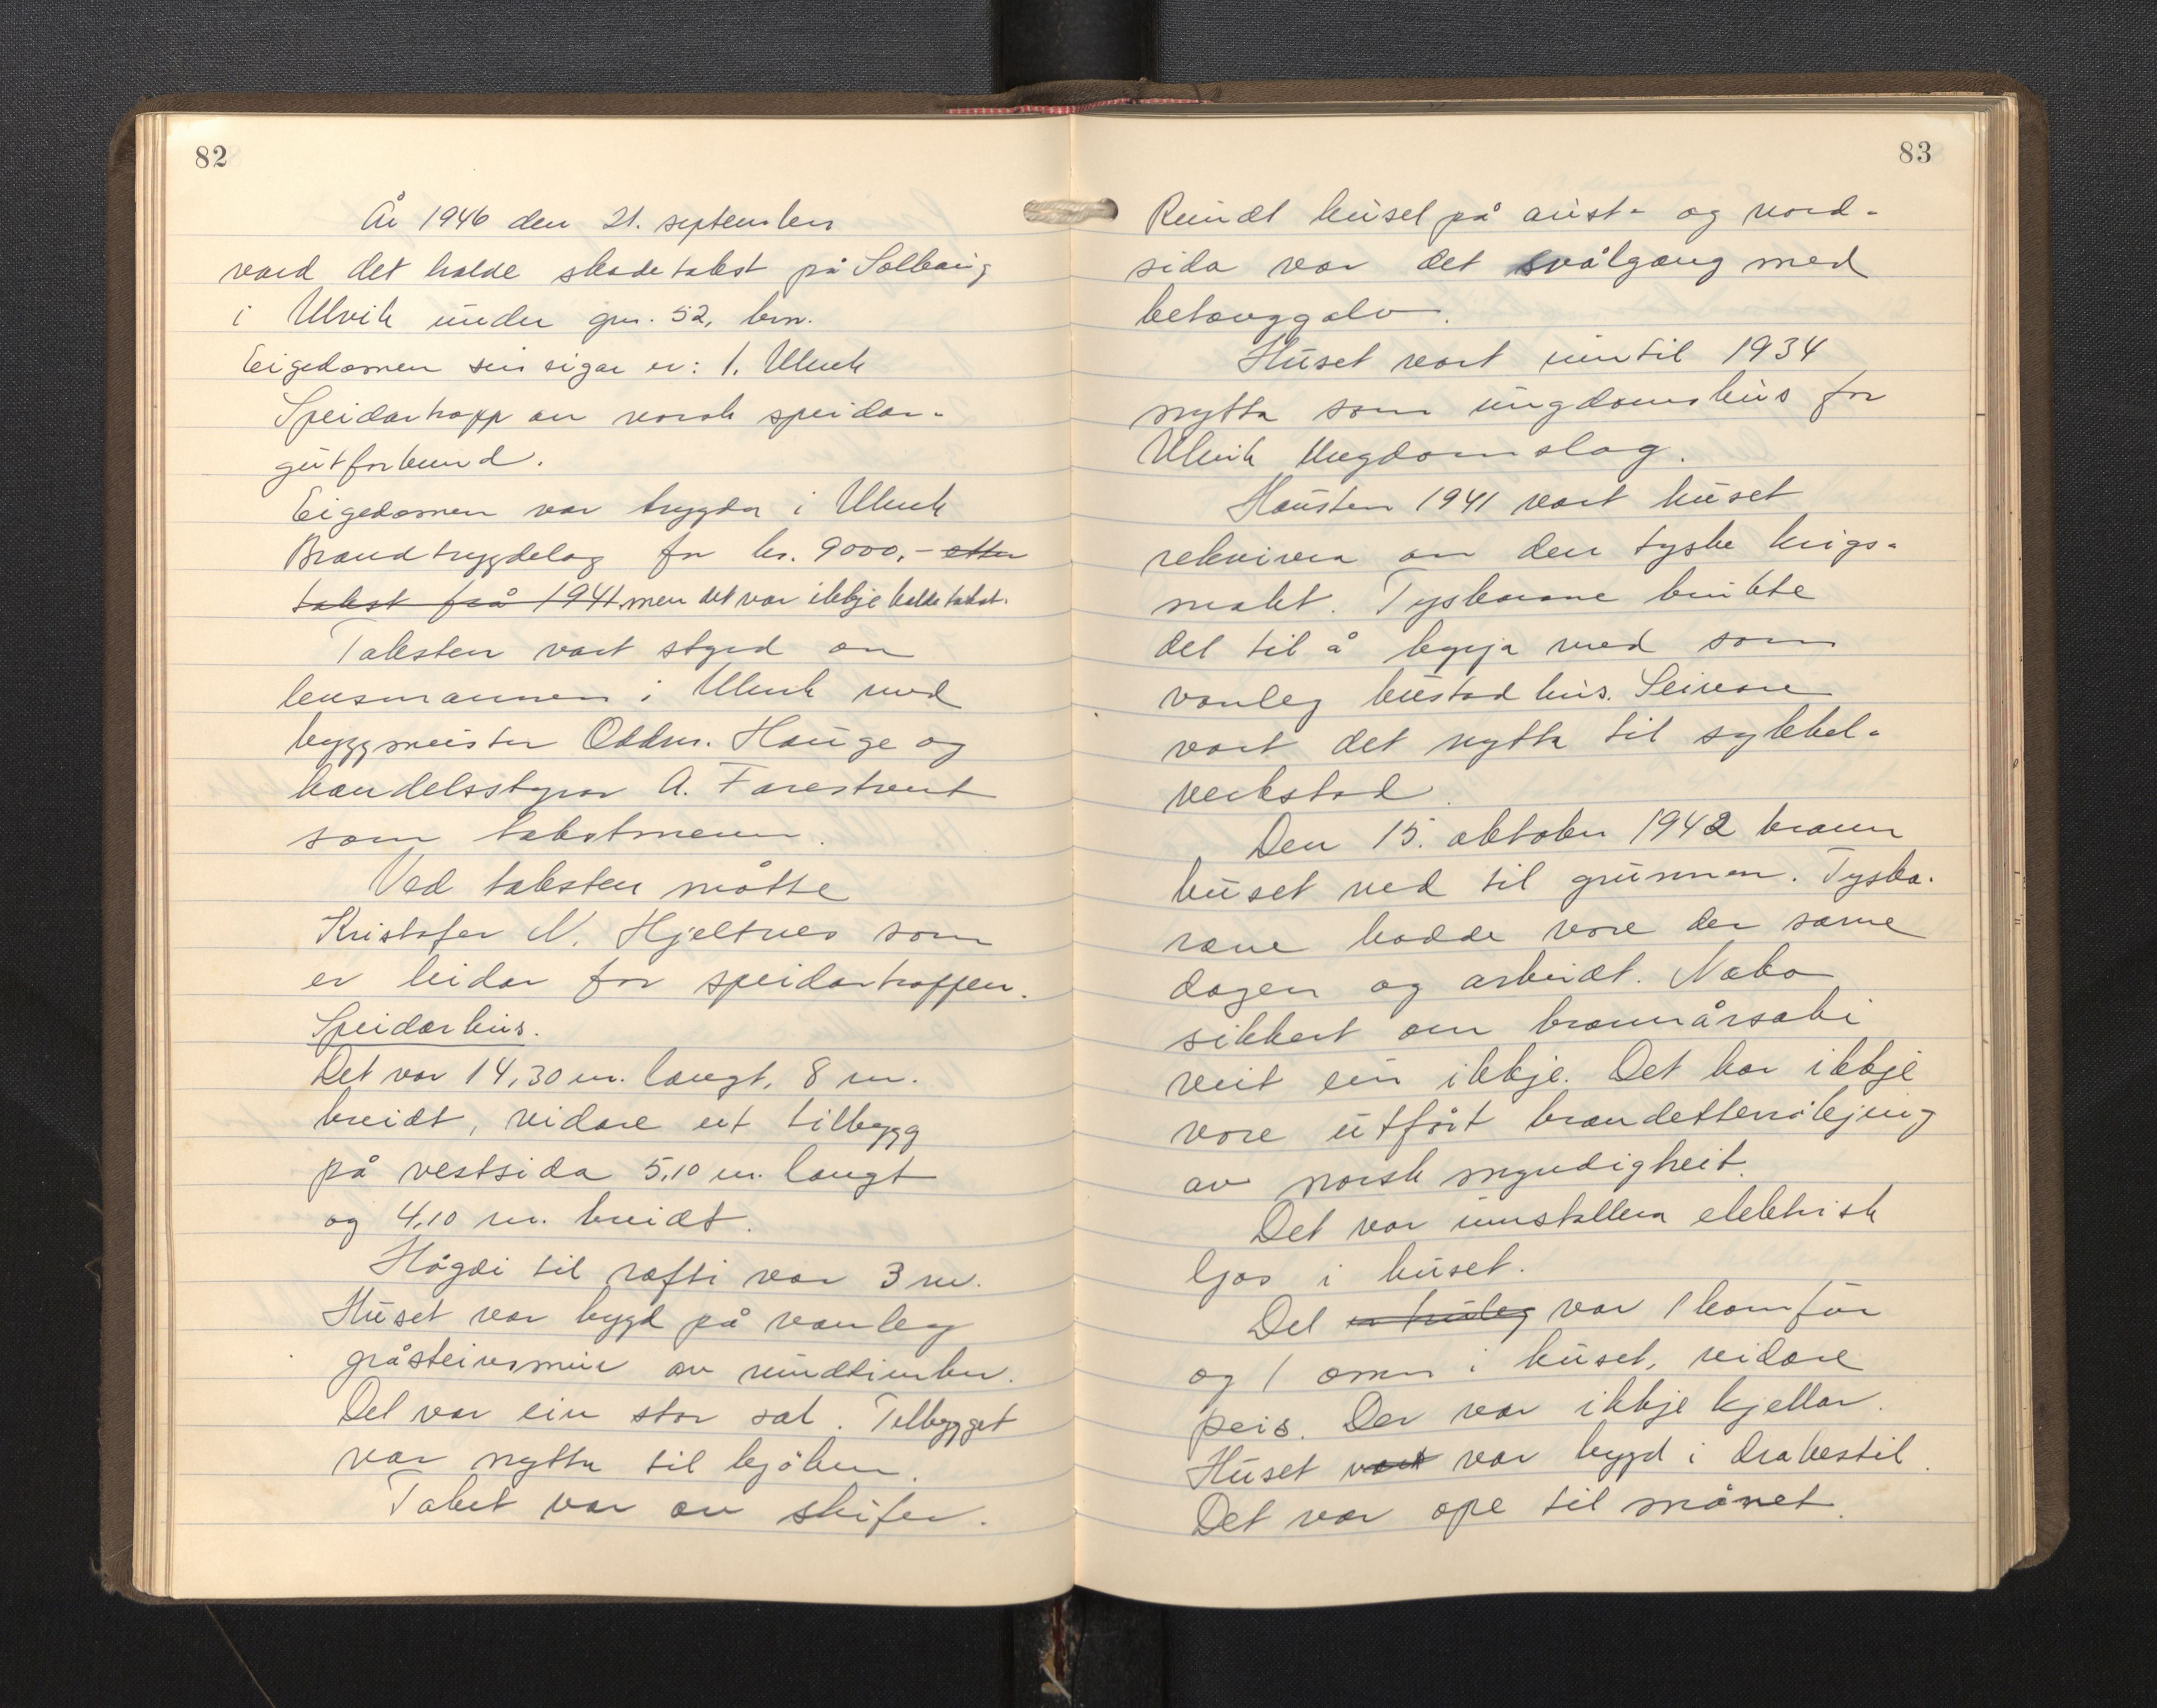 82
År 1946 den 21. september
vard det halde skadetakst på Solhaug
i Ulvik under gnr. 52, bnr.
Eigedomen sin eigar er: 1. Ulvik
Speidartropp av norsk speidar-
gutforbund.
Eigedomen var trygda i Ulvik
Brandtrygdelag for kr. 9000,- etter
takst frå 1941 men det var ikkje halde takst.
Taksten vart styrd av
lensmannen i Ulvik med
byggmeister Oddm. Hauge og
handelsstyrar A. Farestveit
som takstmenn.
Ved taksten møtte
Kristofer N. Hjeltnes som
er leidar for speidartroppen.
Speidarhus.
Det var 14,30 m. langt, 8 m.
breidt, vidare eit tilbygg
på vestsida 5,10 m. langt
og 4,10 m. breidt.
Høgdi til rafti var 3 m.
Huset var bygd på vanleg
gråsteinsmur av rundtimber.
Det var ein stor sal. Tilbygget
var nytta til kjøken.
Taket var av skifer.
83
Rundt huset på aust- og nord-
sida var det svalgang med
betonggolv.
Huset vart inntil 1934
nytta som ungdomshus for
Ulvik Ungdomslag.
Hausten 1941 vart huset
rekvirera av den tyske krigs-
makt. Tyskarane brukte
det til å byrja med som
vanleg bustadhus. Seinare
vart det nytta til sykkel-
verkstad.
Den 15. oktober 1942 brann
huset ned til grunnen. Tyska-
rane hadde vore der same
dagen og arbeidt. Noko
sikkert om brannårsaki
veit ein ikkje. Det har ikkje
vore utført brandetterrøkjing
av norsk myndigheit.
Det var innstallera elektrisk
ljos i huset.
Det er truleg var 1 komfur
og 1 omn i huset, vidare
peis. Der var ikkje kjellar.
Huset vart var bygd i drakestil.
Det var ope til mønet.